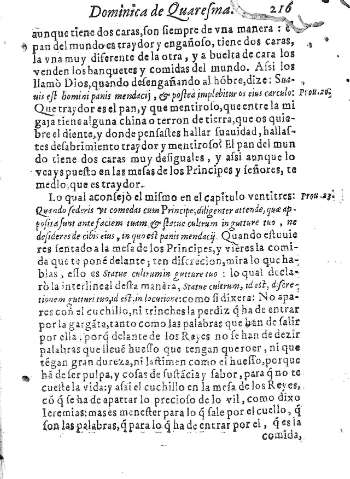 Dominica de Quaresma. 216
aunque tiene dos caras, son siempre de vna manera: e
pan del mundo es traydor y engañoso, tiene dos caras,
la vna muy diferente de la otra, y a buelta de cara los
venden los banquetes y comidas del mundo. Assi los
llamò Dios, quando desengañando al hõbre, dize: Sua-
uis est homini panis mendacij, & postea implebitur os eius calculo: Prou. 20.
Que traydor es el pan, y que mentiroso, que entre la mi
gaja tiene alguna china o terron de tierra, que os quie-
bre el diente, y donde pensastes hallar suauidad, hallas-
tes desabrimiento traydor y mentiroso? El pan del mun
do tiene dos caras muy desiguales, y assi aunque lo
veays puesto en las mesas de los Principes y señores, te
medlo, que es traydor.
Lo qual aconsejò el mismo en el capitulo veintitres: Prou. 23.
Quando sederis vt comedas cum Principe, diligenter attende, quæ ap-
posita sunt ante faciem tuam & statue cultrum in gutture tuo, ne
desideres de cibis eius, in quo est panis mendacij. Quando estuuie
res sentado a la mesa de los Principes, y vieres la comi-
da que te ponẽ delante; ten discrecion, mira lo que ha-
blas, esso es Statue cultrum in gutture tuo: lo qual decla-
rò la interlineal desta manera, Statue cultrum, id est, discre-
tionem gutturi tuo, id est, in locutione: como si dixera: No apa-
res con el cuchillo, ni trinches la perdiz q̃ ha de entrar
por la gargãta, tanto como las palabras que han de salir
por ella. porq̃ delante de los Reyes no se han de dezir
palabras que lleuẽ huesso que tengan que roer, ni que
tẽgan gran dureza, ni lastimen como huesso, porque
hã de ser pulpa, y cosas de sustãcia y sabor, para q̃ no te
cueste la vida: y assi el cuchillo en la mesa de los Reyes,
cõ q̃ se ha de apartar lo precioso de lo vil, como dixo
Ieremias: mas es menester para lo q̃ sale por el cuello, q̃
son las palabras, q̃ para lo q̃ ha de entrar por el, q̃ es la
comida,